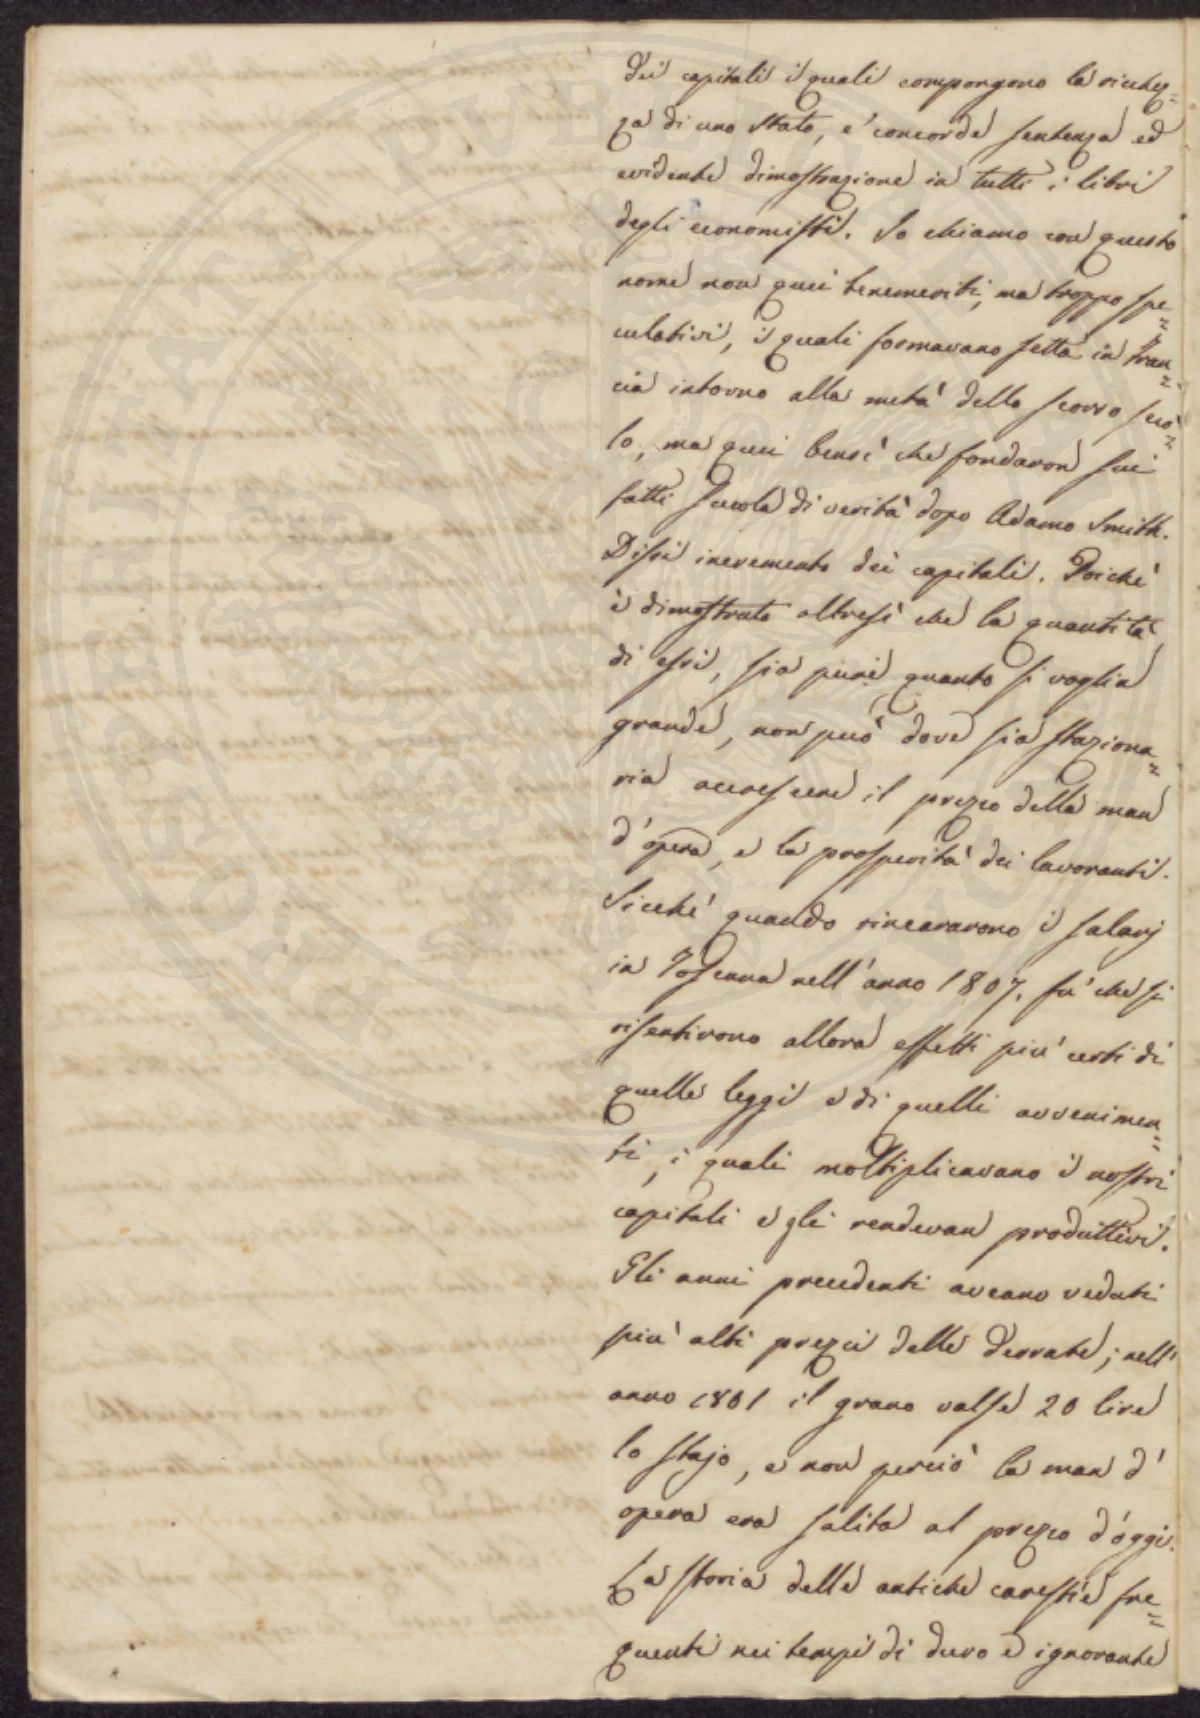 dei capitali i quali compongono la ricchez=
za di uno Stato, e' concorde sentenza ed
evidente dimostrazione in tutti i libri
degli economisti. Io chiamo con questo
nome non quei benemeriti, ma troppo spe=
culativi, i quali formavano setta in Fran=
cia intorno alla metà dello scorso seco=
lo, ma quei bensì che fondaron sui
fatti scuola di verità dopo Adamo Smith.
Dissi incremento dei capitali. Poichè
è dimostrato altresì che la quantità
di essi, sia pure quanto si voglia
grande, non può dove sia staziona=
ria accrescere il prezzo della man
d'opera, e la prosperità dei lavoranti.
Sicchè quando rincararono i salarj
in Toscana nell'anno 1807. fu che si
risentirono allora effetti più certi di
quelle leggi e di quelli avvenimen=
ti, i quali moltiplicavano i nostri
capitali e gli rendevan produttivi.
Gli anni precedenti aveano veduti
più alti prezzi delle derrate; nell'
anno 1801 il grano valse 20 lire
lo stajo, e non perciò la man d'
opera era salita al prezzo d'oggi.
La storia delle antiche carestie fre=
quenti nei tempi di duro e ignorante